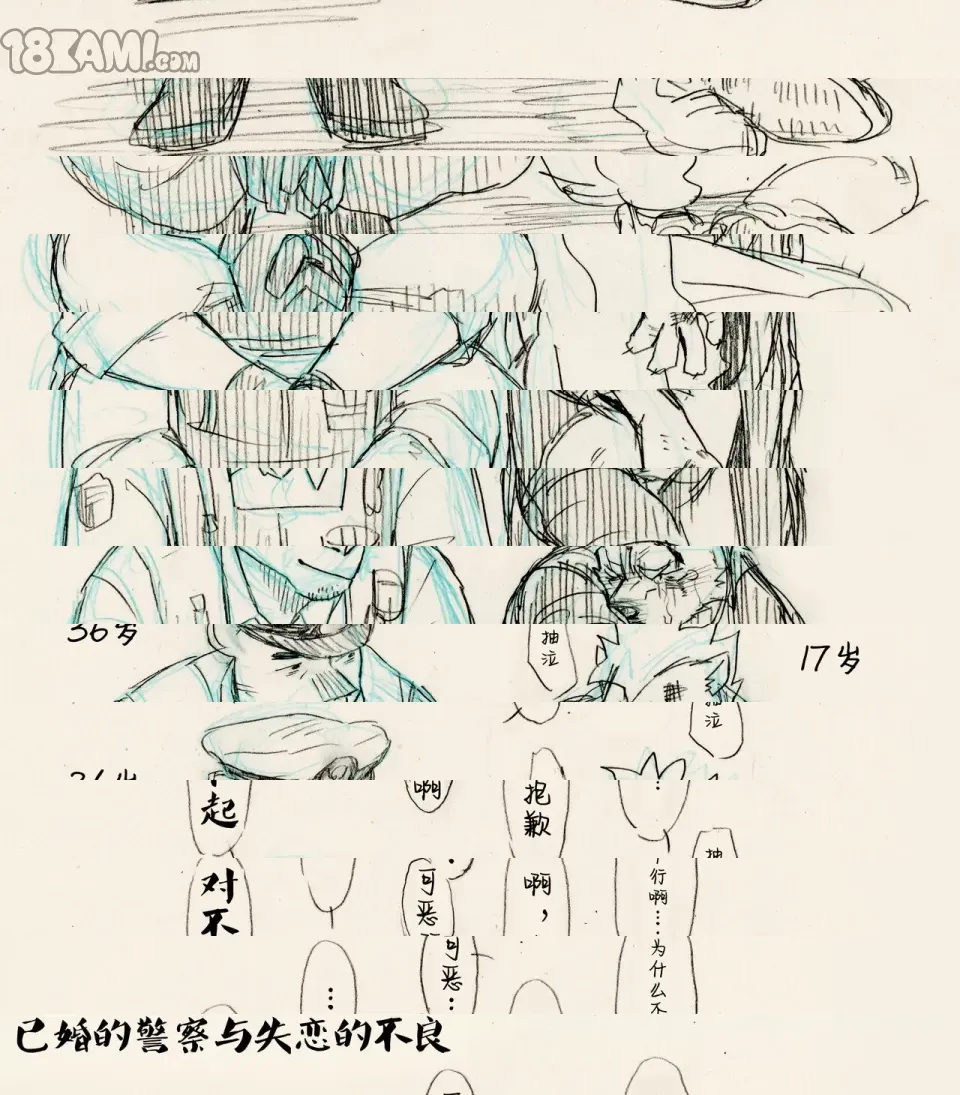 18KAMI.COM
36岁
抽泣
17岁
抽泣
起
啊
抱歉
…
对不
可恶
啊，
行啊……
…
可恶…
为什么不
已婚的警察与失恋的不良